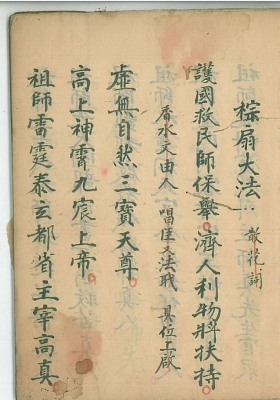 棕扇大法：散挽誦
護國救民師保舉。濟人利物將扶持。
香水文由人 唱臣又法職 具位上啟
虛無自然三寶天尊。
高上神霄九宸上帝。
祖師雷霆泰玄都省主宰高真